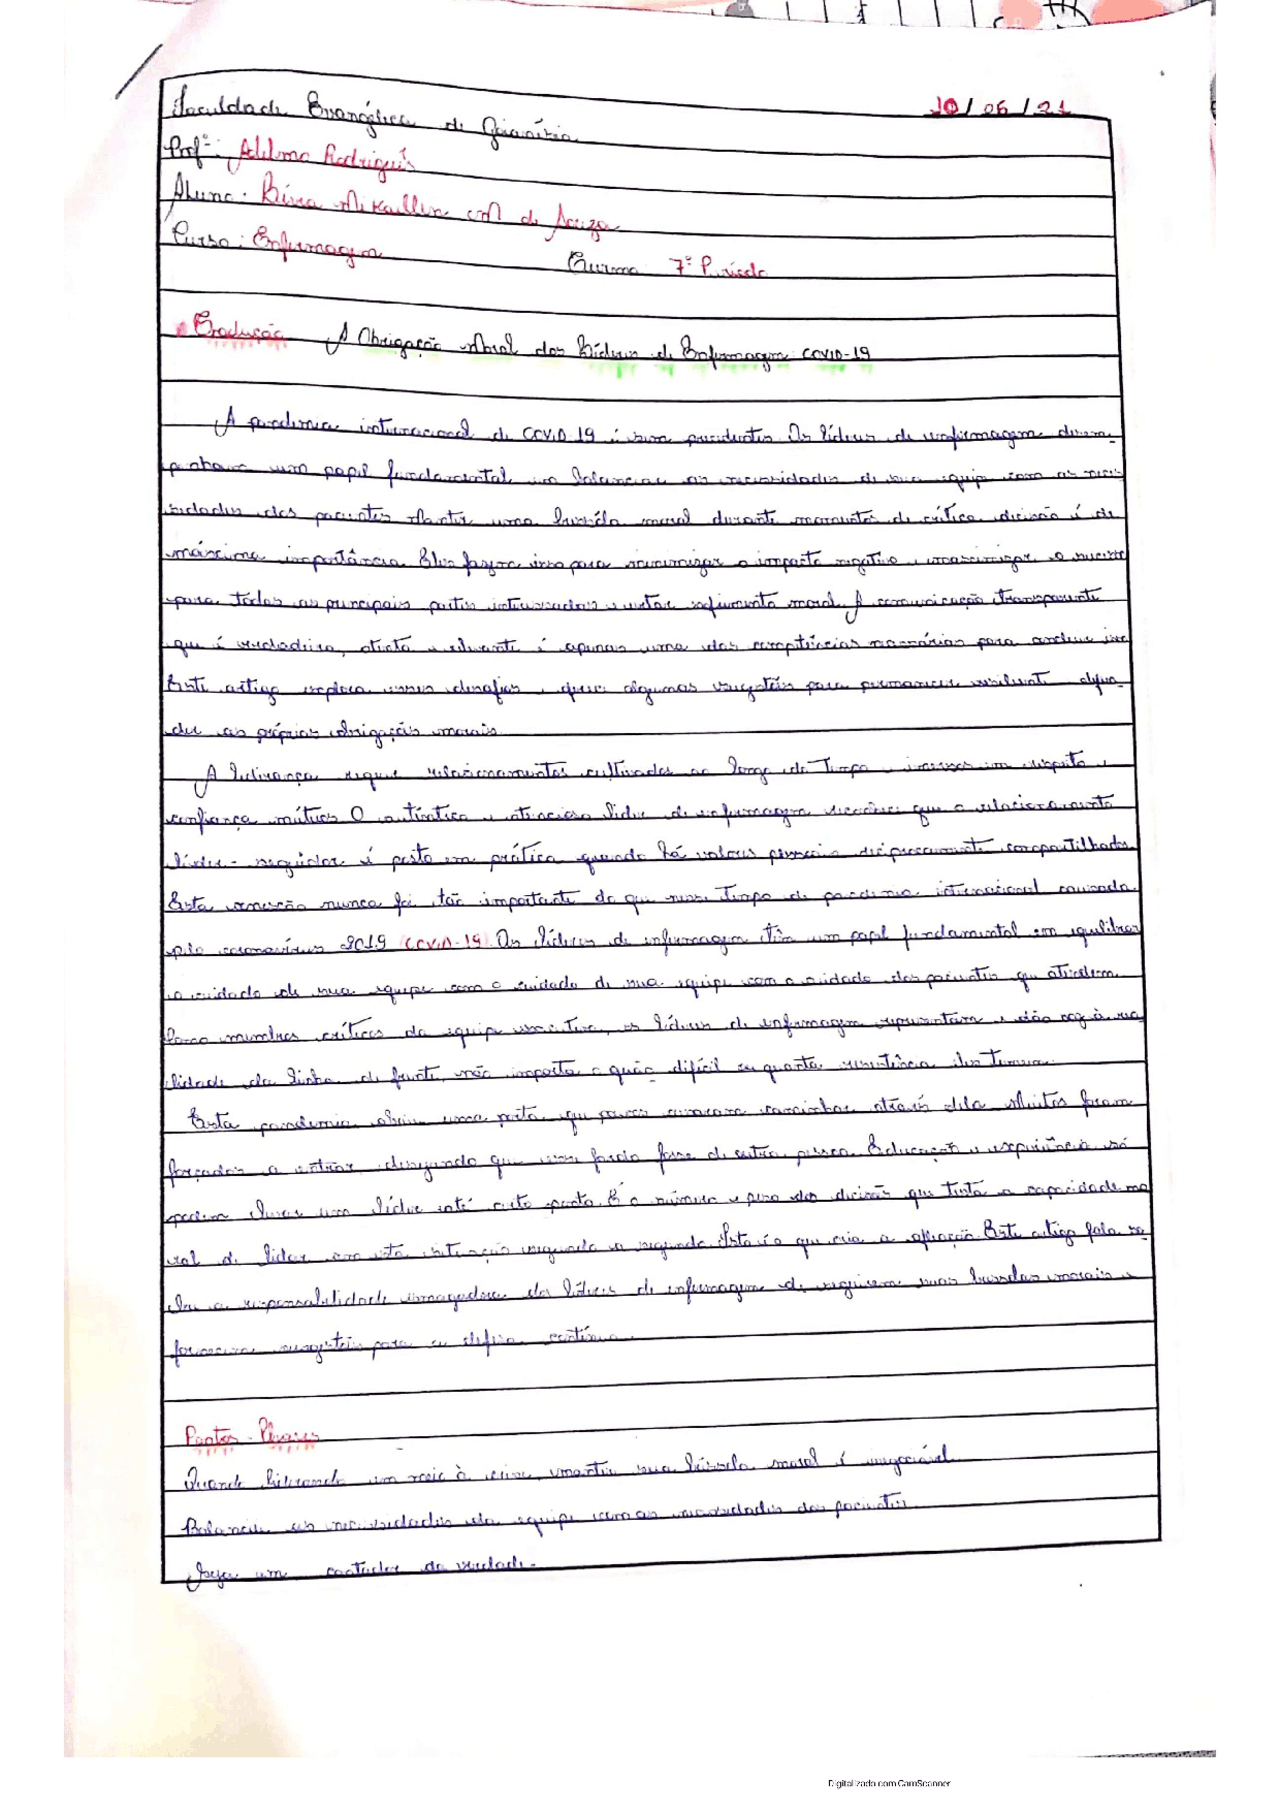 10/06/21
Faculdade Evangélica de Goianésia
Profª: Adilma Rodrigues
Aluna: Mikaelle M de Souza
Curso: Enfermagem Turma 7º Período
Tradução A Obrigação Moral dos Líderes de Enfermagem COVID-19
A pandemia internacional de COVID 19 é sem precedentes Os líderes de enfermagem desem-
penham um papel fundamental em balancear as necessidades de sua equipe com as neces
sidades dos pacientes Manter uma bússola moral durante momentos de crítica decisão é de
máxima importância Eles fazem isso para minimizar o impacto negativo e maximizar o sucesso
para todas as principais partes interessadas e evitar sofrimento moral. A comunicação transparente
que é verdadeira, direta e relevante é apenas uma das competências necessárias para conduzir isso
Este artigo explora esses desafios e oferece algumas sugestões para permanecer resiliente defen-
der as próprias obrigações morais
A liderança requer relacionamentos cultivados ao longo do Tempo e imersos em respeito e
confiança mútuos O autêntico e atencioso líder de enfermagem reconhece que o relacionamento
líder-seguidor é posto em prática quando há valores pessoais reciprocamente compartilhados
Esta conexão nunca foi tão importante do que nesse Tempo de pandemia internacional causada
pelo coronavírus 2019 (COVID-19). Os líderes de enfermagem Têm um papel fundamental em equilibrar
o cuidado de sua equipe com o cuidado de sua equipe com o cuidado dos pacientes que atendem
Como membros críticos da equipe executiva, os líderes de enfermagem representam e dão voz à rea
lidade da linha de frente, não importa o quão difícil ou quanta resistência eles Tenham
Esta pandemia abriu uma porta que poucos ousaram caminhar através dela Muitos foram
forçados a entrar desejando que esse fardo fosse de outra pessoa. Educação e experiência só
podem levar um líder até certo ponto. É o número e peso das decisões que testa a capacidade mo
ral de lidar com esta situação segundo a segundo. Isto é o que cria a aflição. Este artigo fala so
bre a responsabilidade esmagadora dos líderes de enfermagem de seguirem suas bússolas morais e
fornecem sugestões para a defesa contínua
Pontos-Chaves
Quando liderando em meio à crise, manter sua bússola moral é inegociável
Balancear as necessidades da equipe com as necessidades dos pacientes
Seja um contador da verdade.
Digitalizado com CamScanner